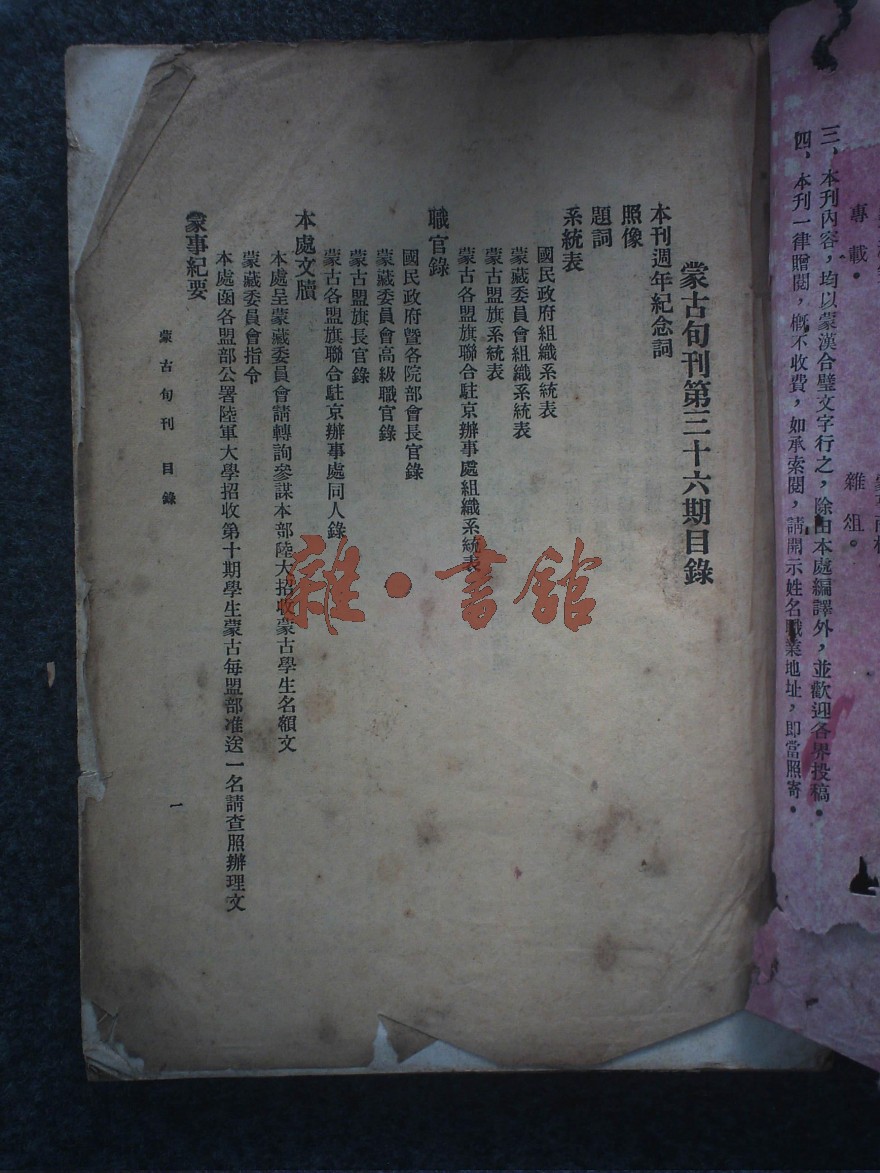 專載。
雜俎。
三、本刊內容，均以蒙漢合璧文字行之，除由本處編譯外，並歡迎各界投稿。
四、本刊一律贈閱，概不收費，如承索閱，請開示姓名職業地址，即當照寄。
蒙古旬刊第三十六期目錄
本刊週年紀念詞
照像
題詞
系統表
國民政府組織系統表
蒙藏委員會組織系統表
蒙古盟旗系統表
蒙古各盟旗聯合駐京辦事處組織系統表
職官錄
國民政府曁各院部會長官錄
蒙藏委員會高級職官錄
蒙古盟旗長官錄
蒙古各盟旗聯合駐京辦事處同人錄
本處文牘
本處呈蒙藏委員會請轉詢參謀本部陸大招收蒙古學生名額文
蒙藏委員會指令
本處函各盟部公署陸軍大學招收第十期學生蒙古每盟部准送一名請查照辦理文
蒙事紀要
蒙古旬刊 目錄
一
雜·書館